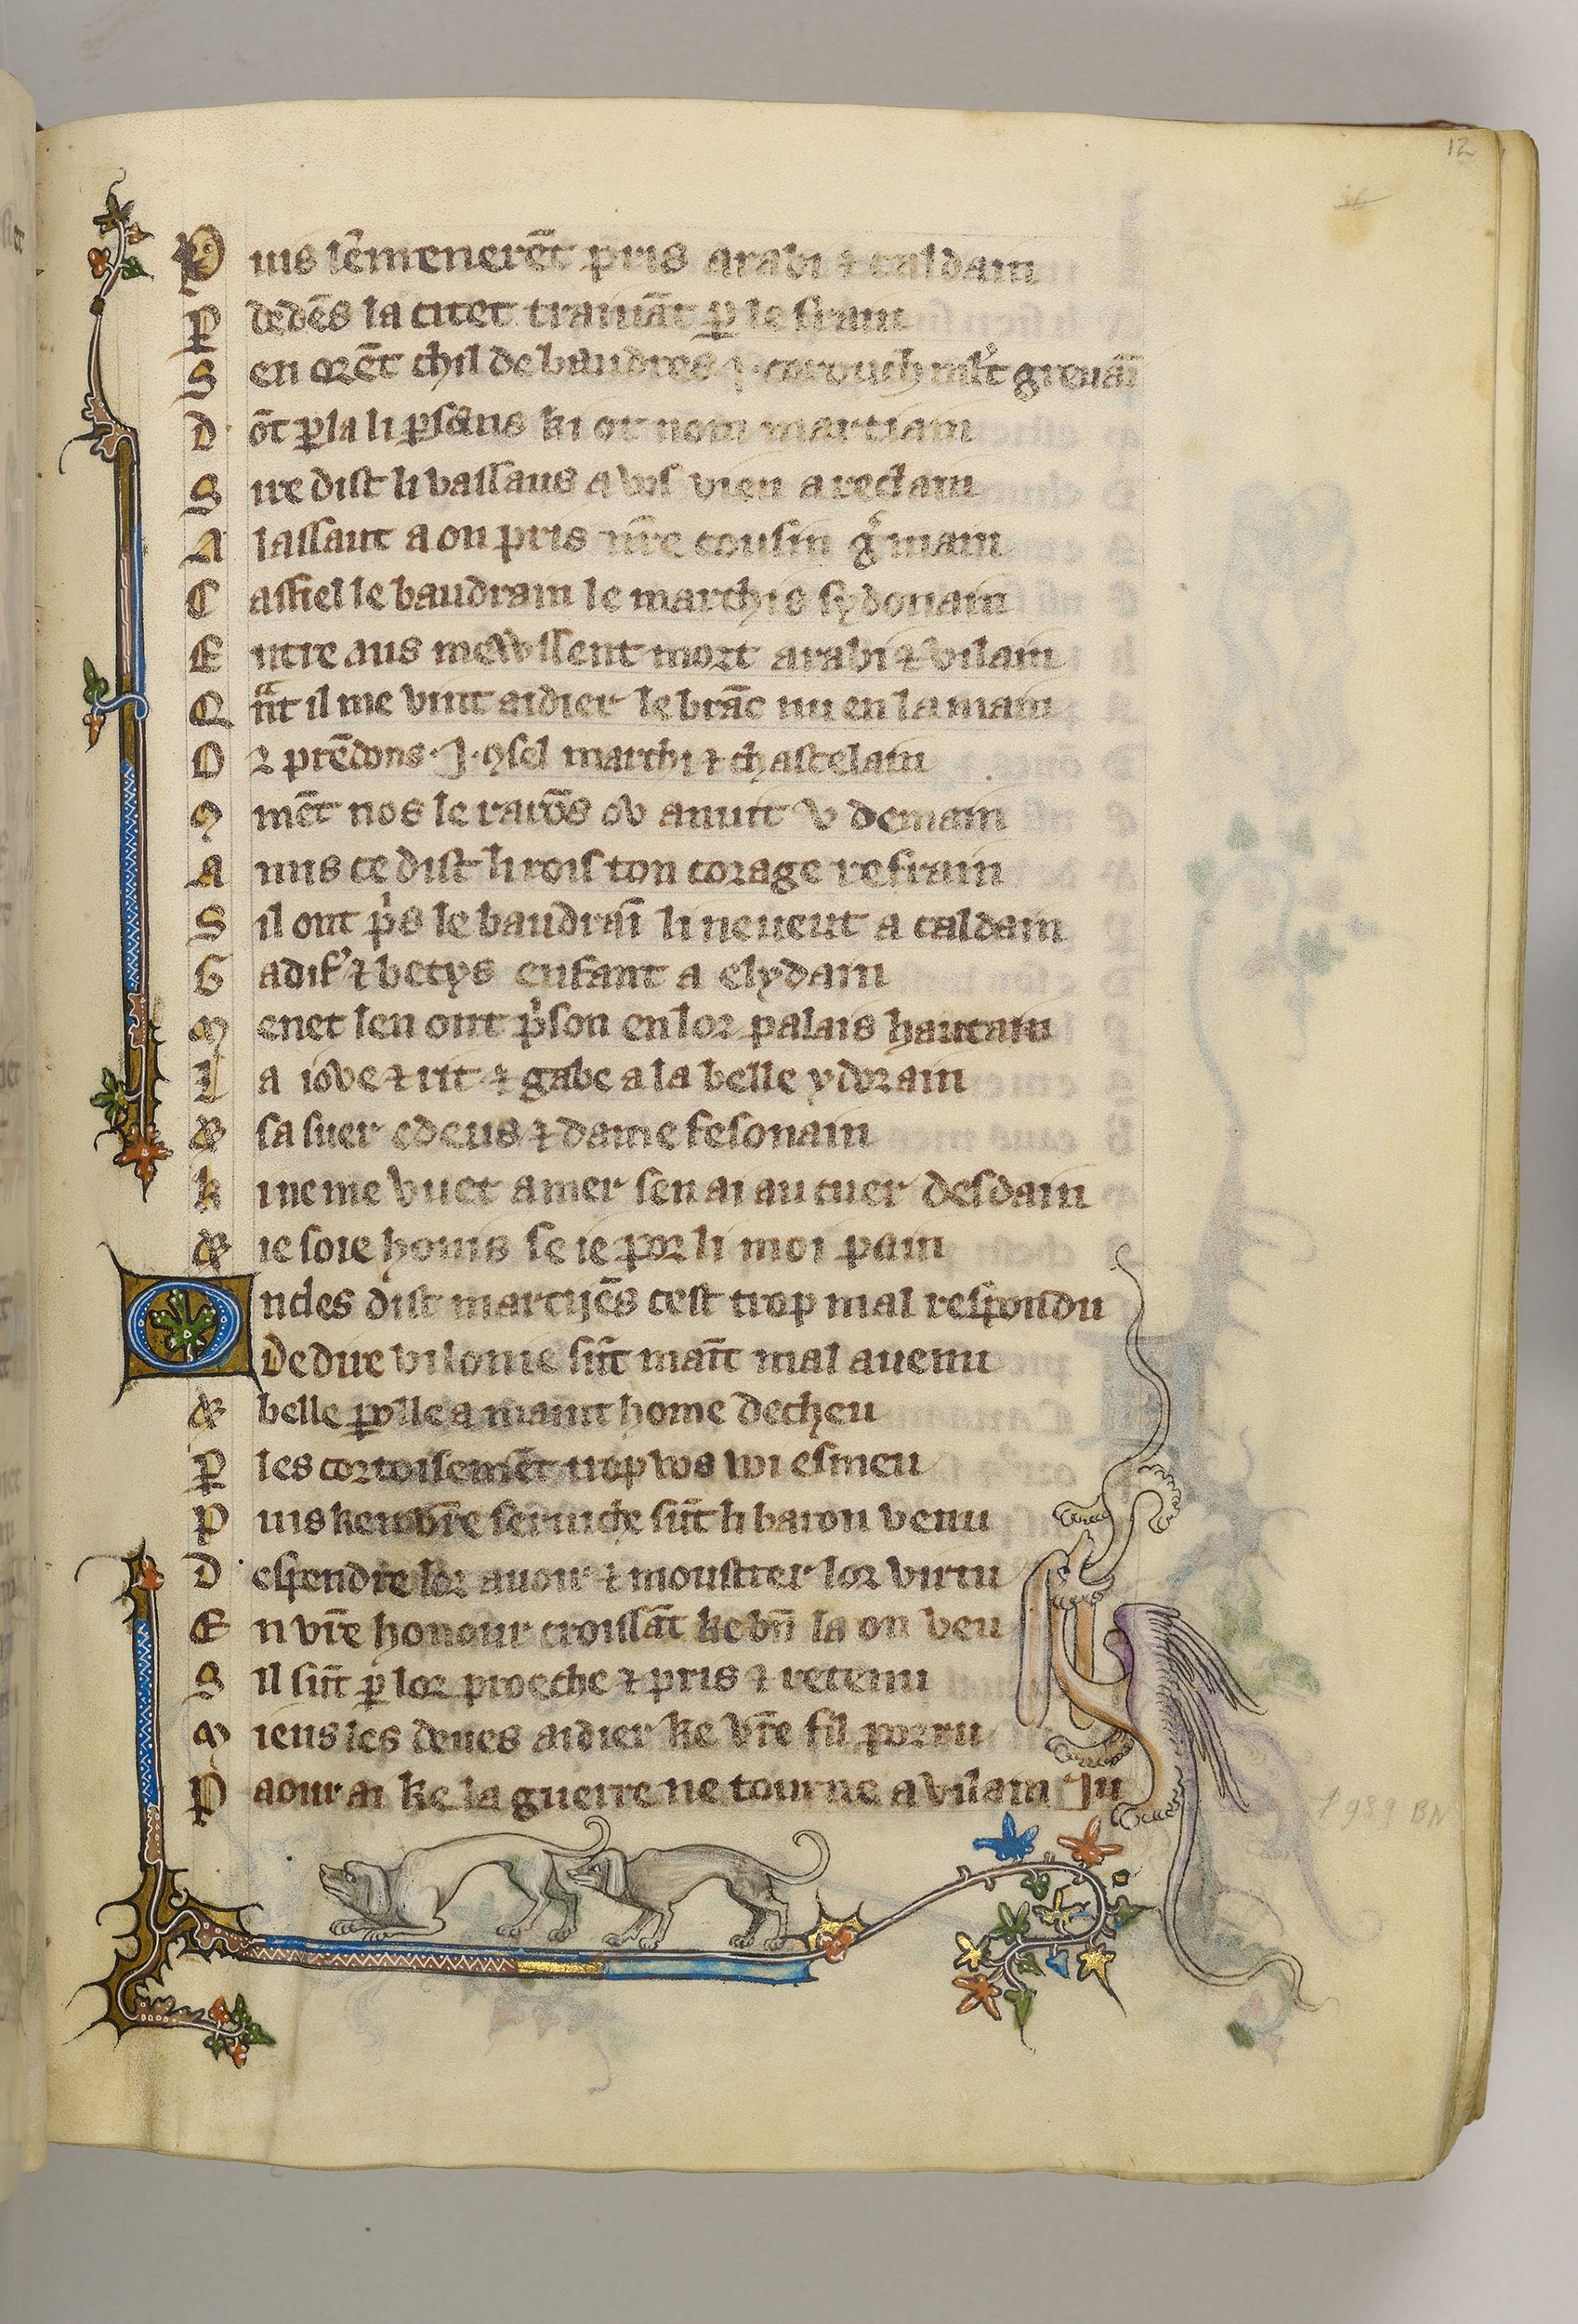 12
Puis lēmenerēt pris arabi ⁊ caldain
P dedēs la citet traināt ꝑ le frain
S en orēt chil de baudres ⁊ grenāī
D ōt ꝑla li ꝑsans ki ot nom martiain
S ire dist li vassaus a vos vien a reclain
A lassaut a on pris nr̄e cousin gʳmain
C assiel le baudrain le marchis sydonain
E ntre aus mewssent mort arabi ⁊ vilain
Q nͣt il me vint aidier le brāc nu en la main
O r prēdons .J. ꝯsel marchi ⁊ chastelain
ꝯ mēt nos le rarōs ov anuit v demain
A mis ce dist li rois ton corage refrain
S il ont pⁱs le baudraī li neueut a caldain
G adifʾ ⁊ betys enfant a elydain
M enet len ont pⁱson en lor palais hautain
L a iove ⁊ rit ⁊ gabe a la belle ydorain
& sa suer edeus ⁊ dame fesonain
k i ne me vuet amer sen ai au cuer desdain
& ie soie honis se ie por li moi pain
Oncles dist marcijēs cest trop mal respondu
De dire vilonie sūt māīt mal auenu
& belle ꝑolle a maint home decheu
P les cortoisemēt trop vos voi esmeu
P uis ken vr̄e seruiche sūt li baron venu
D espendre lor auoir ⁊ moustrer lor virtu
E n vr̄e honour croissāt ke bn̄ la on veu
S il sūt ꝑ lor proeche ⁊ pris ⁊ retenu
M ieus les deues aidier ke vr̄e fil porru
P aour ai ke la guerre ne tourne a vilain Ju
1989 BN